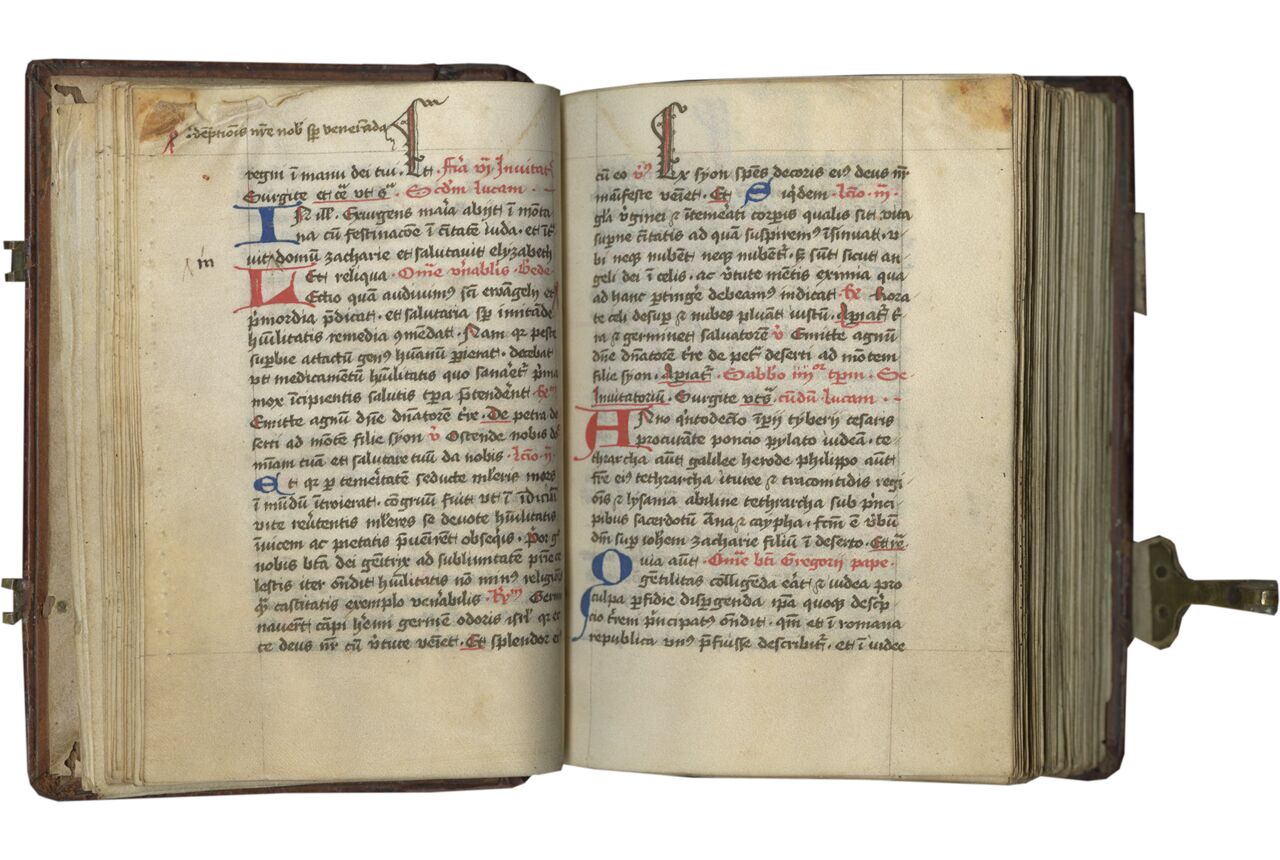 r̄ dēptiōis nr̄e nob̄ sp̄ venerāda
regni ī manu dei tui · Et · Fīa vj Inuitat'
Surgite et cē vt sᵃ · Scdm̄ lucam ·
IN ill' · Exurgens maīa abijt ī mōta
na cū festinacōe ī cītatē iuda · et īt
uit domū zacharie et salutauit elyzabeth
Et reliqua · Omē vn̄ablis Bede
Lectio quā audiuimꝰ scī ewāgelij et
p̄mordia p̄dicat · et salutaria sp̄ imitāde
hūilitatis remedia cōmēdat · Nam qꝛ peste
supbie attactū genꝰ hūanū pierat · decebat
vt medicamētū hūilitatis quo sanar̄et p̄ma
mox īcipientis salutis tp̄a p̄tenderēt · Rx
Emitte agnū dn̄e dn̄atorē tr̄e · De petra de
serti ad mōtē filie syon v̄ Ostende nobis do
mīam tuā et salutare tuū da nobis · lcīo ij ·
Et qꝛ p temeitatē seducte ml̄ieris mors
ī mūdū ītroierat · cōgruū fuit vt ī īdiciū
vite reūtentis ml̄ieres se deuote hūilitatis
īuicem ac pietatis p̄uenirēt obseqijs · Por gᵒ
nobis btā dei genitrix ad sublimitatē prīe ce
lestis iter ōndit hūilitatis nō minꝰ religiōis
qᷓ castitatis exemplo ven̄abilis · Rxᵐ Germi
nauerūt cāpi hemi germē odoris isrl' qꝛ ec
ce deus nr̄ cū v̄tute veniet · Et splendor eiꝰ
cū eo v̄ꝰ Ex syon spēs decoris eiꝰ deus nr̄
māifeste veniet · Et Siqdem · lcīo iij ·
gl̄a v̄ginei ⁊ ītemerati corpis qualis sit vita
supne cītatis ad quā suspiremꝰ īsinuat · v
bi neqꝫ nubent neqꝫ nubent̄ · sꝫ sūt sicut an
geli dei ī celis · ac v̄tute mētis eximia qua
ad hanc ptingē debeamꝰ indicat · Rx Rora
te celi desup ⁊ nubes pluāt iustū · Apiat̄ t̄
ra ⁊ germinet saluatorē v̄ Emitte agnū
dn̄e dn̄atorē tr̄e de pet̄ deserti ad mōtem
filie syon · Apiat̄ · Sabbo iiijᵒʳ tpm̄ · Se
Inuitatoriū · Surgite vt sᵃ · cūdū lucam ·
ANno qͥntodecīo īpij tyberij cesaris
procurāte poncio pylato iudeā · te
thrarcha aūt galilee herode philippo aūt
fr̄e eiꝰ tethrarcha ituree ⁊ traconitidis regi
ōis ⁊ lysania abiline tethrarcha sub p̄nci
pibus sacerdotū Anna ⁊ caypha · fcm̄ ē v̄bū
dn̄i sup ioh̄em zacharie filiū ī deserto · Et re
Quia aūt · Omē bti Gregorij pape ·
gētilitas colligēda erat ⁊ iudea pro
culpa pfidie dispgenda ip̄a quoqꝫ descp̄
cio tr̄em p̄ncipatꝰ ōndit · qm̄ et ī romana
republica vnꝰ p̄fuisse describit̄ · et ī iudee